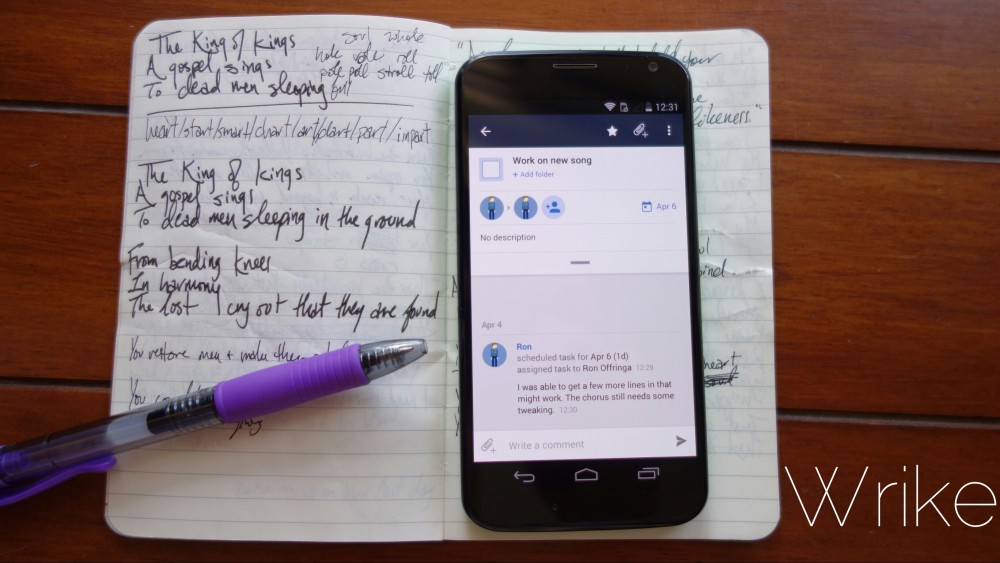 The King of kings
A gospel sings
To dead men sleeping
soul whole
hole role roll
pole poll stroll toll
heart/start/smart/chart/art/dart/part/impart
The King of kings
A gospel sings
To dead men sleeping in the ground
From bending knees
In harmony
The lost cry out that they are found
You restore men + make them
You
likeness."
heart
12:31
Work on new song
+ Add folder
Apr 6
No description
Apr 4
Ron
scheduled task for Apr 6 (1d)
assigned task to Ron Offringa 12:29
I was able to get a few more lines in that
might work. The chorus still needs some
tweaking. 12:30
Write a comment
Wrike